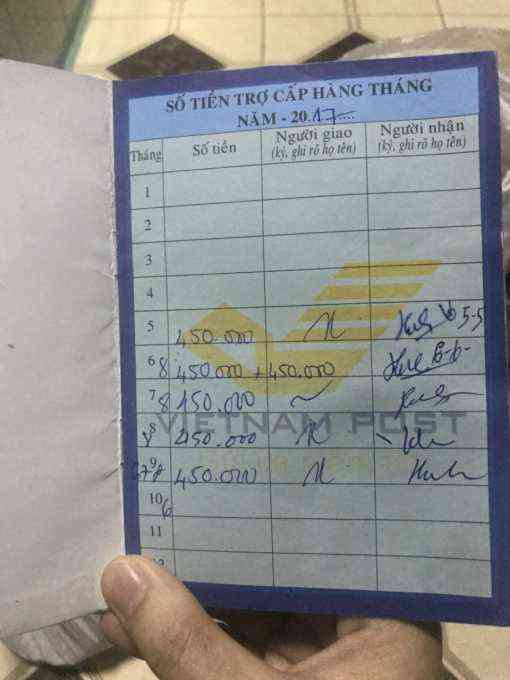 SỐ TIỀN TRỢ CẤP HÀNG THÁNG
NĂM - 2017....
Tháng Số tiền Người giao (ký, ghi rõ họ tên) Người nhận (ký, ghi rõ họ tên)
1
2
3
4
5 450.000 5-5
6 8 450.000 + 450.000 6-6-
7 8 450.000
8 450.000
9 450.000
10 6
11
12
VIETNAM POST